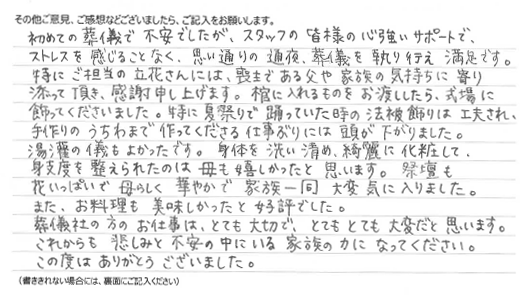 その他ご意見、ご感想などございましたら、ご記入をお願いします。
初めての葬儀で不安でしたが、スタッフの皆様の心強いサポートで、
ストレスを感じることなく、思い通りの通夜、葬儀を執り行え満足です。
特にご担当の立花さんには、喪主である父や家族の気持ちに寄り
添って頂き、感謝申し上げます。棺に入れるものをお渡ししたら、式場に
飾ってくださいました。特に夏祭りで踊っていた時の法被飾りは工夫され、
手作りのうちわまで作ってくださる仕事ぶりには頭が下がりました。
湯灌の儀もよかったです。身体を洗い清め、綺麗に化粧して、
身支度を整えられたのは母も嬉しかったと思います。祭壇も
花いっぱいで母らしく華やかで家族一同大変気に入りました。
また、お料理も美味しかったと好評でした。
葬儀社の方のお仕事は、とても大切で、とてもとても大変だと思います。
これからも悲しみと不安の中にいる家族の力になってください。
この度はありがとうございました。
(書ききれない場合には、裏面にご記入ください)